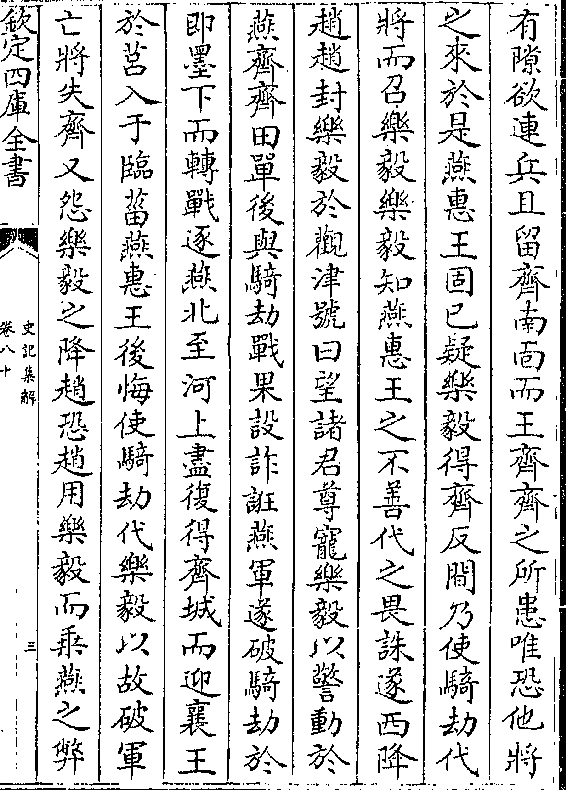 有隙欲連兵且留齊南面而王齊齊之所患唯恐他將
之來於是燕惠王固已疑樂毅得齊反間乃使騎劫代
將而召樂毅樂毅知燕惠王之不善代之畏誅遂西降
趙趙封樂毅於觀津號曰望諸君尊寵樂毅以警動於
燕齊齊田單後與騎劫戰果設詐誑燕軍遂破騎劫於
即墨下而轉戰逐燕北至河上盡復得齊城而迎襄王
於莒入于臨菑燕惠王後悔使騎劫代樂毅以故破軍
亡將失齊又怨樂毅之降趙恐趙用樂毅而乘燕之弊
欽定四庫全書
史記集解
卷八十
三